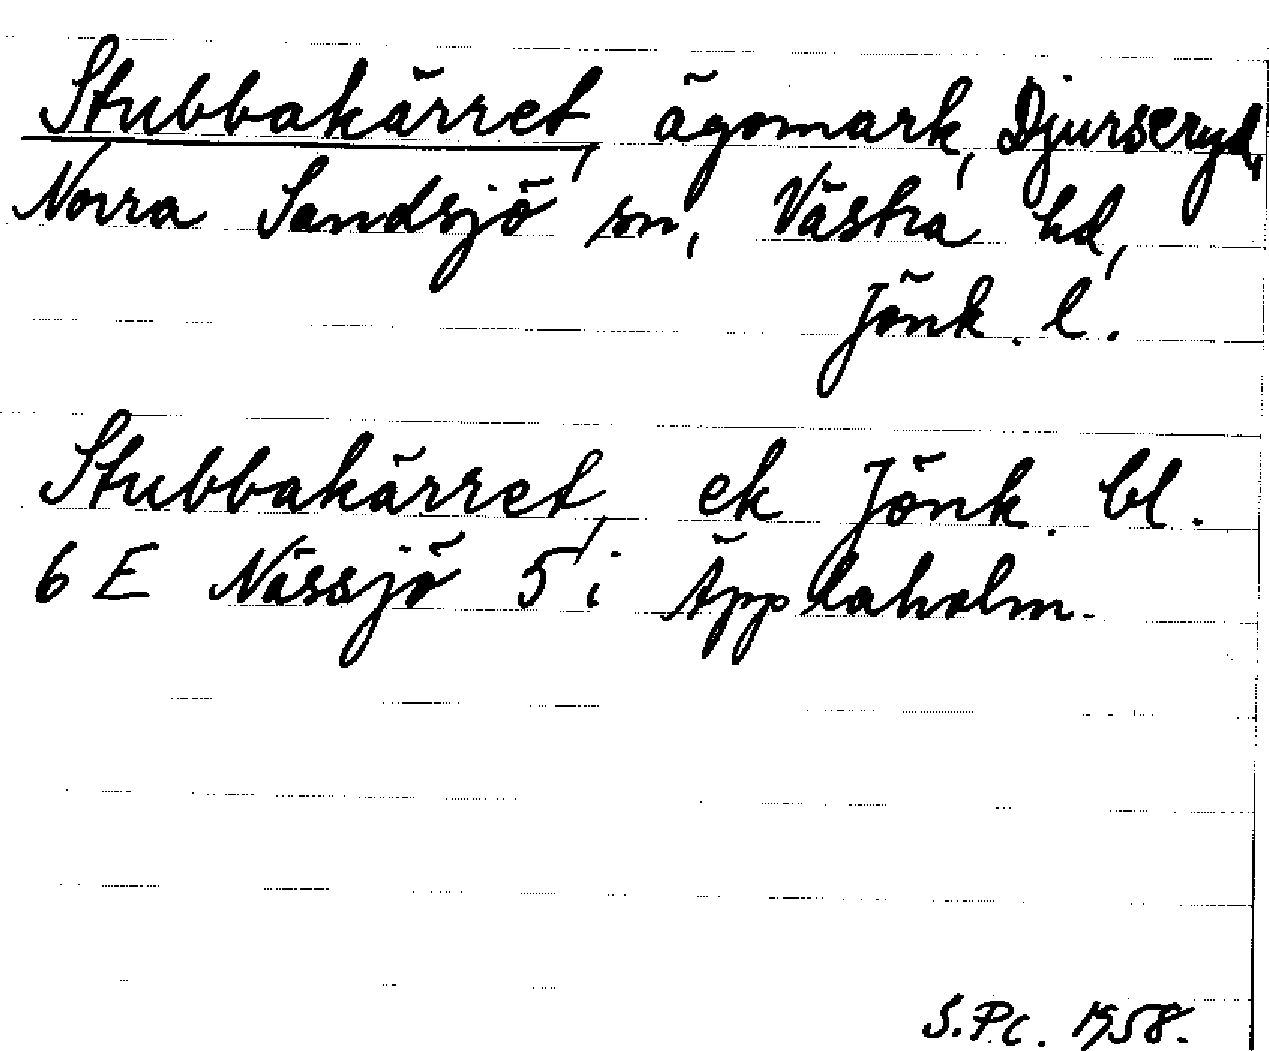 Stubbakärret, ägomark, Djurseryd,
Norra Sandsjö sn, Västra hd,
Jönk. l.
Stubbakärret, ek Jönk. bl.
6 E Nässjö 5 i Äpplaholm.
S.Pc. 1958.